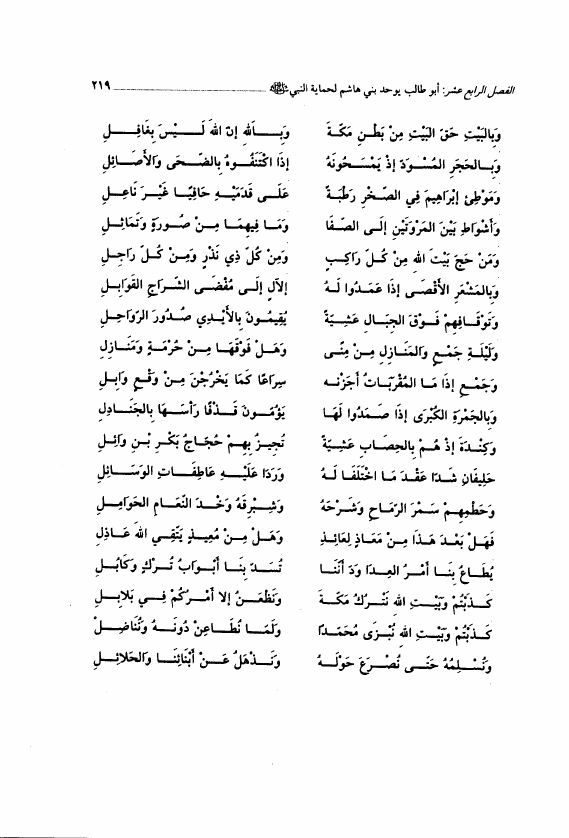 الفصل الرابع عشر: أبو طالب يوحد بني هاشم لحماية النبي ﷺ ٢١٩
وَبِالبَيْتِ حَقِّ البَيْتِ مِنْ بَطْنِ مَكَّةَ وَبِاللهِ إِنَّ اللهَ لَيْسَ بِغَافِلِ
وَبِالحَجَرِ المُسْوَدِّ إِذْ يَمْسَحُونَهُ إِذَا اكْتَنَفُوهُ بِالضُّحَى وَالأَصَائِلِ
وَمَوْطِئِ إِبْرَاهِيمَ فِي الصَّخْرِ رَطْبَةً عَلَى قَدَمَيْهِ حَافِيًا غَيْرَ نَاعِلِ
وَأَشْوَاطِ بَيْنَ المَرْوَتَيْنِ إِلَى الصَّفَا وَمَا فِيهِمَا مِنْ صُورَةٍ وَتَمَاثِلِ
وَمَنْ حَجَّ بَيْتَ اللهِ مِنْ كُلِّ رَاكِبٍ وَمِنْ كُلِّ ذِي نَذْرٍ وَمِنْ كُلِّ رَاجِلِ
وَبِالمَشْعَرِ الأَقْصَى إِذَا عَمَدُوا لَهُ إِلاَلٍ إِلَى مُفْضَى الشِّرَاجِ القَوَابِلِ
وَتَوْقَافِهِمْ فَوْقَ الجِبَالِ عَشِيَّةً يُقِيمُونَ بِالأَيْدِي صُدُورَ الرَّوَاحِلِ
وَلَيْلَةِ جَمْعٍ وَالمَنَازِلِ مِنْ مِنًى وَهَلْ فَوْقَهَا مِنْ حُرْمَةٍ وَمَنَازِلِ
وَجَمْعٍ إِذَا مَا المُقْرَبَاتُ أَجَزْنَهُ سِرَاعًا كَمَا يَخْرُجْنَ مِنْ وَقْعِ وَابِلِ
وَبِالجَمْرَةِ الكُبْرَى إِذَا صَمَدُوا لَهَا يَؤُمُّونَ قَذْفًا رَأْسَهَا بِالجَنَادِلِ
وَكِنْدَةَ إِذْ هُمْ بِالحِصَابِ عَشِيَّةً تُجِيزُ بِهِمْ حُجَّاجُ بَكْرِ بْنِ وَائِلِ
حَلِيفَانِ شَدَّا عَقْدَ مَا اخْتَلَفَا لَهُ وَرَدَّا عَلَيْهِ عَاطِفَاتِ الوَسَائِلِ
وَحَطْمِهِمْ سُمْرَ الرِّمَاحِ وَشَرْحَهُ وَشِبْرِقَهُ وَخْدَ النَّعَامِ الحَوَامِلِ
فَهَلْ بَعْدَ هَذَا مِنْ مَعَاذٍ لِعَائِذٍ وَهَلْ مِنْ مُعِيذٍ يَتَّقِي اللهَ عَاذِلِ
يُطَاعُ بِنَا أَمْرُ العِدَا وَدَّ أَنَّنَا تُسَدُّ بِنَا أَبْوَابُ تُرْكٍ وَكَابُلِ
كَذَبْتُمْ وَبَيْتِ اللهِ نَتْرُكُ مَكَّةَ وَنَظْعَنُ إِلاَّ أَمْرُكُمْ فِي بَلاَبِلِ
كَذَبْتُمْ وَبَيْتِ اللهِ نُبْزَى مُحَمَّدًا وَلَمَّا نُطَاعِنْ دُونَهُ وَنُنَاضِلْ
وَنُسْلِمُهُ حَتَّى نُصْرَعَ حَوْلَهُ وَنَذْهَلُ عَنْ أَبْنَائِنَا وَالحَلاَئِلِ